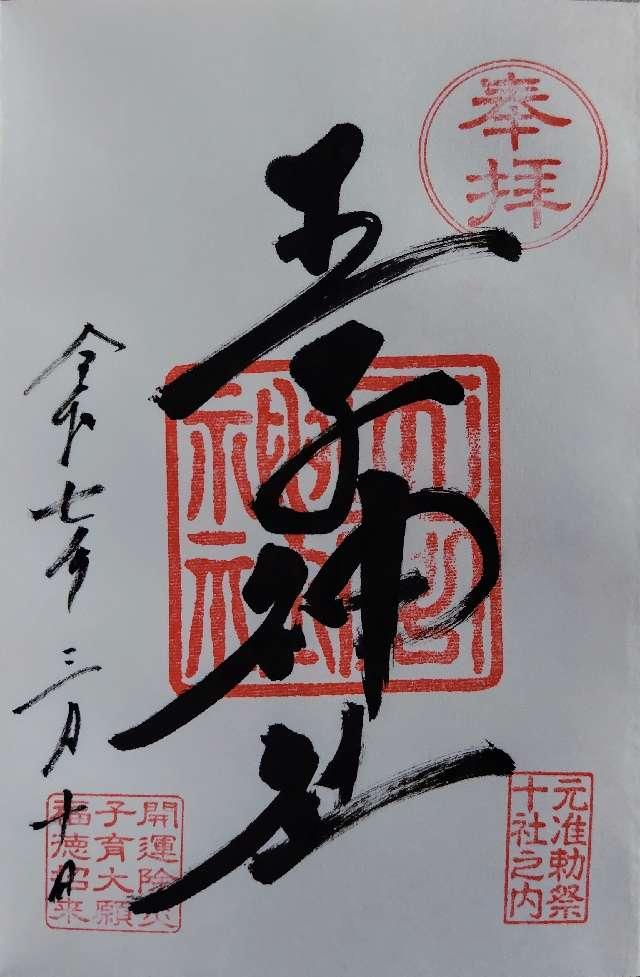 奉拝
王子神社
王子神社
元准勅祭
十社之内
令和七年三月十日
開運除災
子育大願
福徳招来